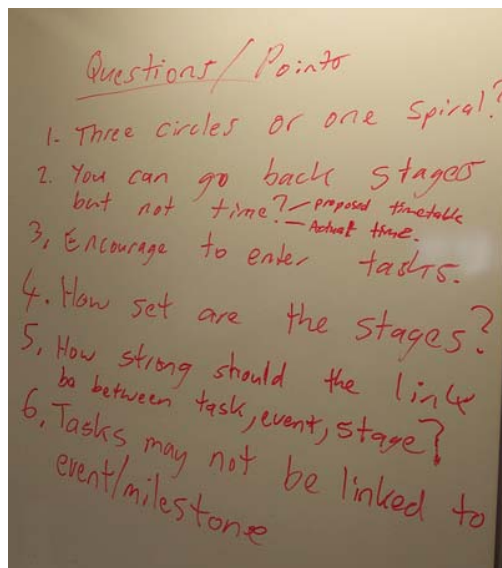 Questions/Points
1. Three circles or one spiral?
2. You can go back stages
but not time? - proposed timetable
- Actual time.
3, Encourage to enter tasks.
4. How set are the stages?
5, How strong should the link
be between task, event, stage?
6, Tasks may not be linked to
event/milestone